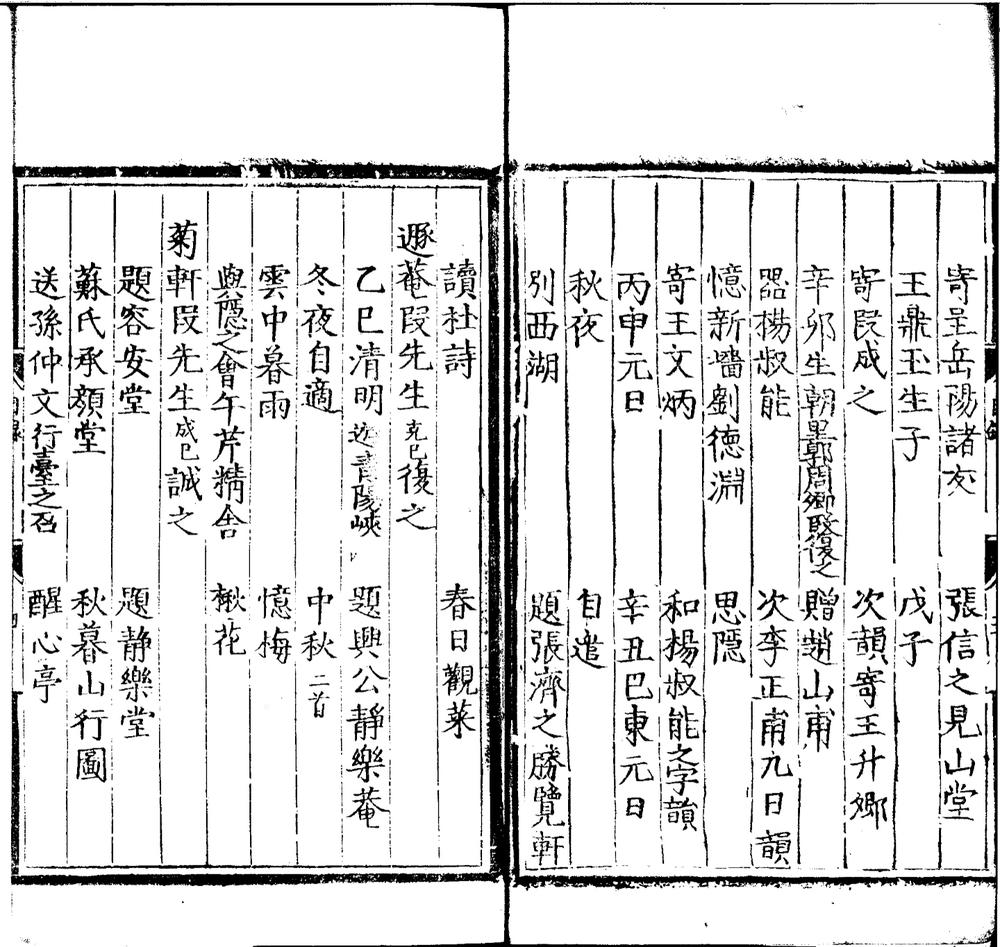 寄呈岳陽諸友 張信之見山堂
王鼎玉生子 戊子
寄段成之 次韻寄王升卿
辛卯生朝呈郭周卿段復之 贈趙山甫
器楊叔能 次李正甫九日韻
憶新墻劉德淵 思隱
寄王文炳 和楊叔能之字韻
丙申元日 辛丑巴東元日
秋夜 自遣
別西湖 題張濟之勝覽軒
讀杜詩 春日觀菜
遯菴段先生克巳復之
乙巳清明遊青陽峽 題興公靜樂菴
冬夜自適 中秋二首
雲中暮雨 憶梅
與隱之會午芹精舍 楸花
菊軒段先生成巳誠之
題容安堂 題靜樂堂
蘇氏承顏堂 秋暮山行圖
送孫仲文行臺之召 醒心亭